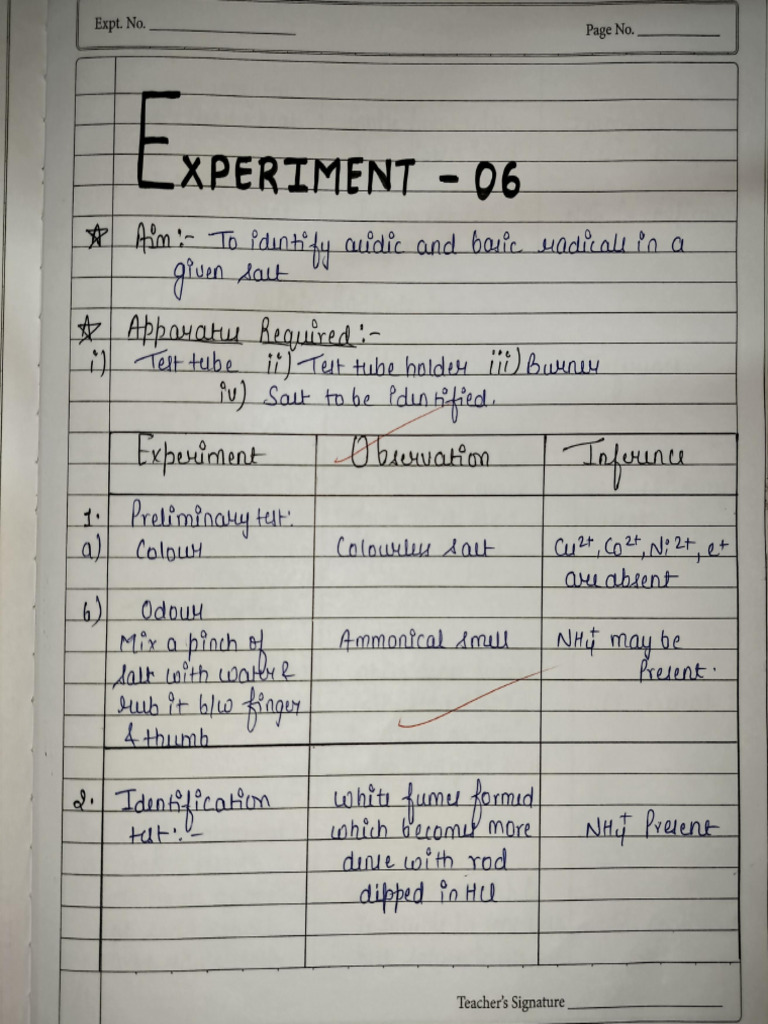 Expt. No.
Page No.
EXPERIMENT - 06
Aim:- To identify acidic and basic radicals in a
given salt
Apparatus Required:-
i) Test tube ii) Test tube holder iii) Burner
iv) Salt to be identified.
Experiment Observation Inference
1. Preliminary test:
a) Colour Colourless salt Cu2+, Co2+, Ni2+, e+
are absent
b) Odour
Mix a pinch of Ammonical smell NH4+ may be
salt with water & Present.
rub it b/w finger
& thumb
2. Identification white fumes formed
test:- which becomes more NH4+ Present
dense with rod
dipped in HCl
Teacher's Signature